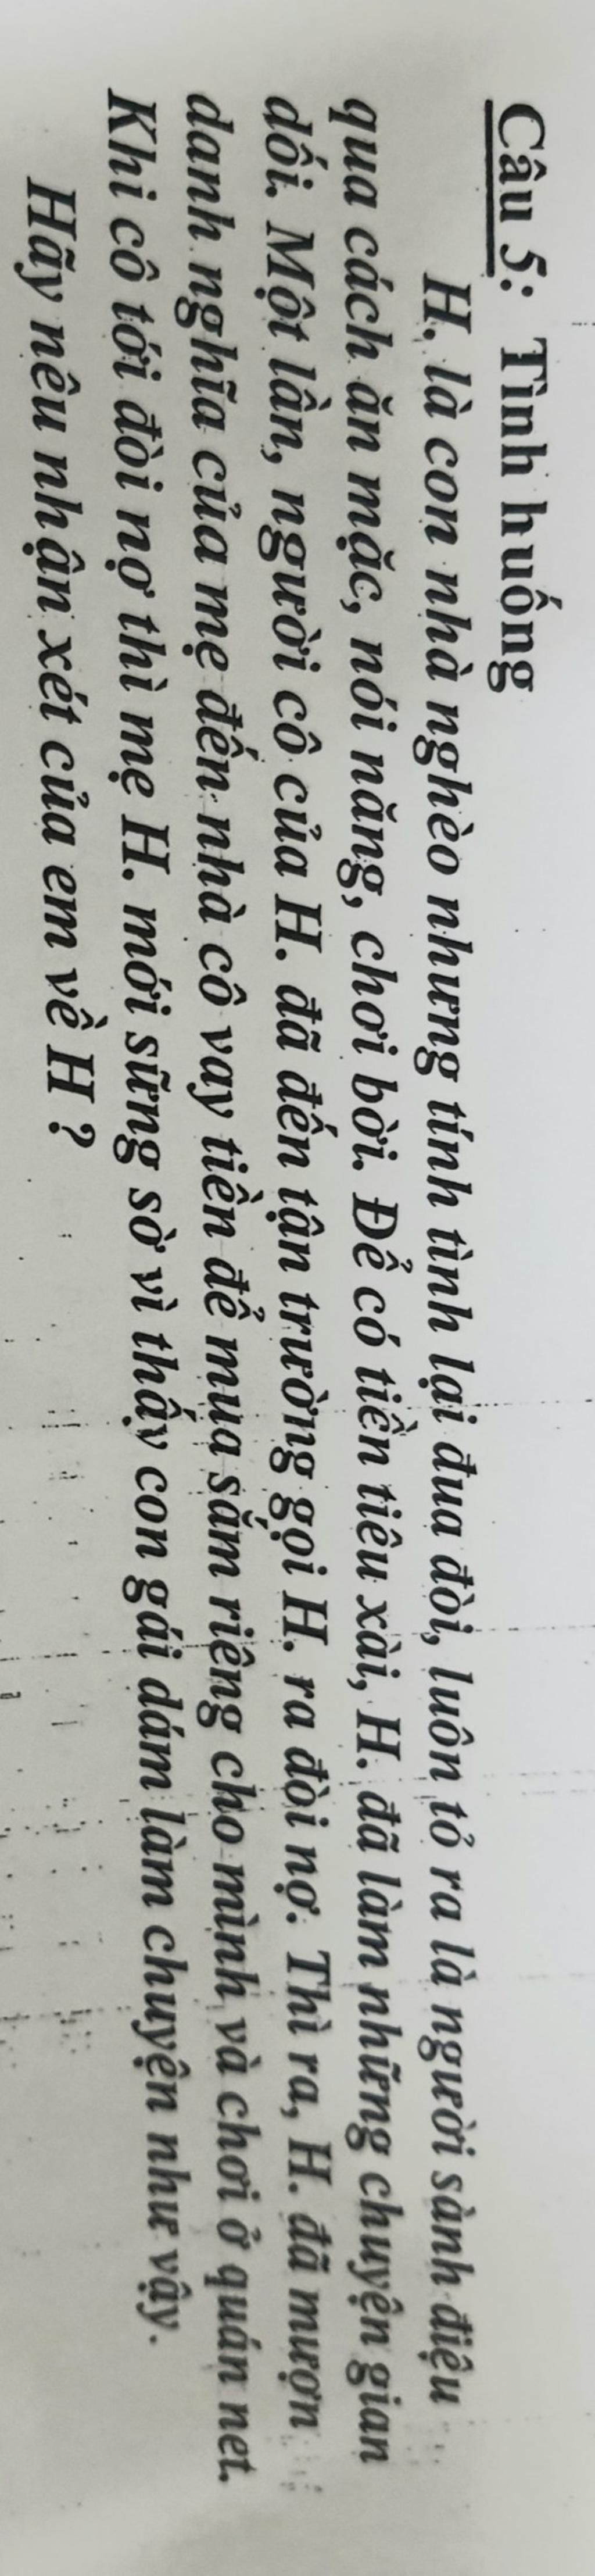 Câu 5: Tình huống
H. là con nhà nghèo nhưng tính tình lại đua đòi, luôn tỏ ra là người sành điệu
qua cách ăn mặc, nói năng, chơi bời. Để có tiền tiêu xài, H. đã làm những chuyện gian
dối. Một lần, người cô của H. đã đến tận trường gọi H. ra đòi nợ. Thì ra, H. đã mượn
danh nghĩa của mẹ đến nhà cô vay tiền để mua sắm riêng cho mình và chơi ở quán net.
Khi cô tới đòi nợ thì mẹ H. mới sững sờ vì thấy con gái dám làm chuyện như vậy.
Hãy nêu nhận xét của em về H ?